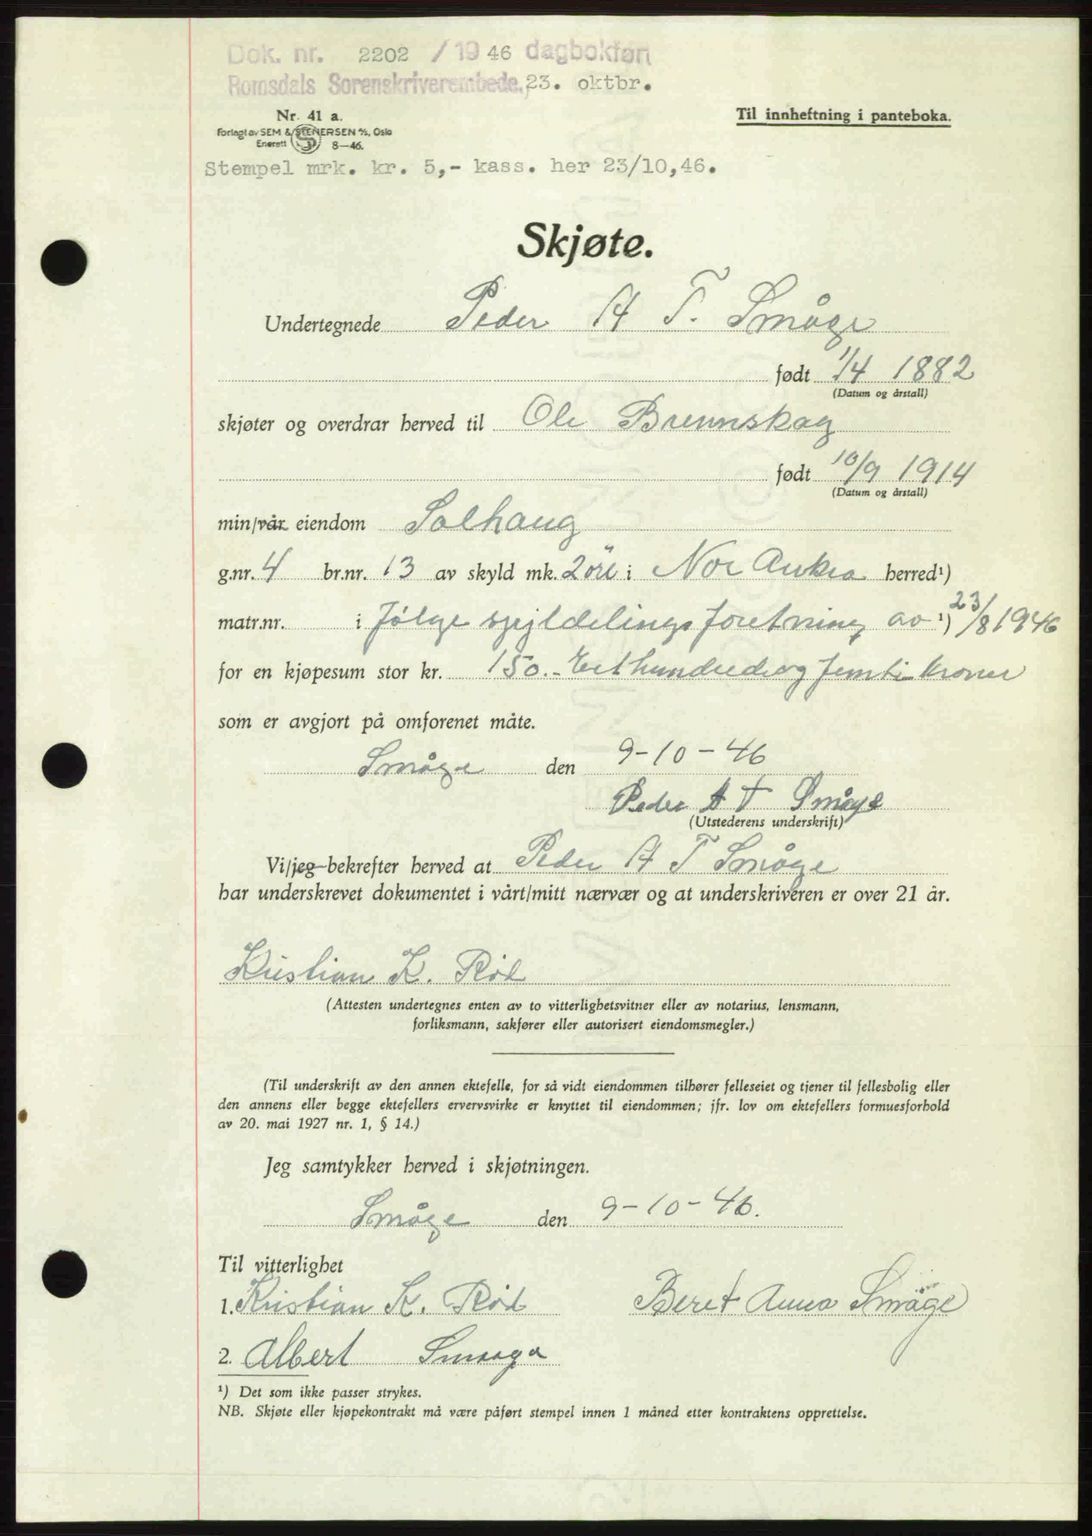 Dok. nr. 2202 / 1946 dagbokført
Romsdals Sorenskriverembede, 23. oktbr.
Nr. 41 a.
Til innheftning i panteboka.
Forlagt av SEM & STENERSEN A/S, Oslo
Enerett 8—46.
Stempel mrk. kr. 5,- kass. her 23/10,46.
Skjøte.
Undertegnede Peder A T. Småge
født 1/4 1882
(Datum og årstall)
skjøter og overdrar herved til Ole Brennskag
født 10/9 1914
(Datum og årstall)
min/vår eiendom Solhaug
g.nr. 4 br.nr. 13 av skyld mk. 2 öre i Nor Aukra herred¹)
matr.nr. i følge skyldelingsforetning av ¹) 23/8 1946
for en kjøpesum stor kr. 150.- Etthundredeogfemti kroner
som er avgjort på omforenet måte.
Småge den 9-10-46
Peder A T Småge
(Utstederens underskrift)
Vi/jeg bekrefter herved at Peder A T Småge
har underskrevet dokumentet i vårt/mitt nærvær og at underskriveren er over 21 år.
Kristian K. Röd
(Attesten undertegnes enten av to vitterlighetsvitner eller av notarius, lensmann,
forliksmann, sakfører eller autorisert eiendomsmegler.)
(Til underskrift av den annen ektefelle, for så vidt eiendommen tilhører felleseiet og tjener til fellesbolig eller
den annens eller begge ektefellers ervervsvirke er knyttet til eiendommen; jfr. lov om ektefellers formuesforhold
av 20. mai 1927 nr. 1, § 14.)
Jeg samtykker herved i skjøtningen.
Småge den 9-10-46.
Til vitterlighet
1. Kristian K. Röd Beret Anna Småge
2. Albert Smaage
¹) Det som ikke passer strykes.
NB. Skjøte eller kjøpekontrakt må være påført stempel innen 1 måned etter kontraktens opprettelse.